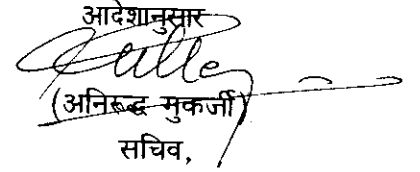 आदेशानुसार
(अनिरूद्ध मुकर्जी)
सचिव,